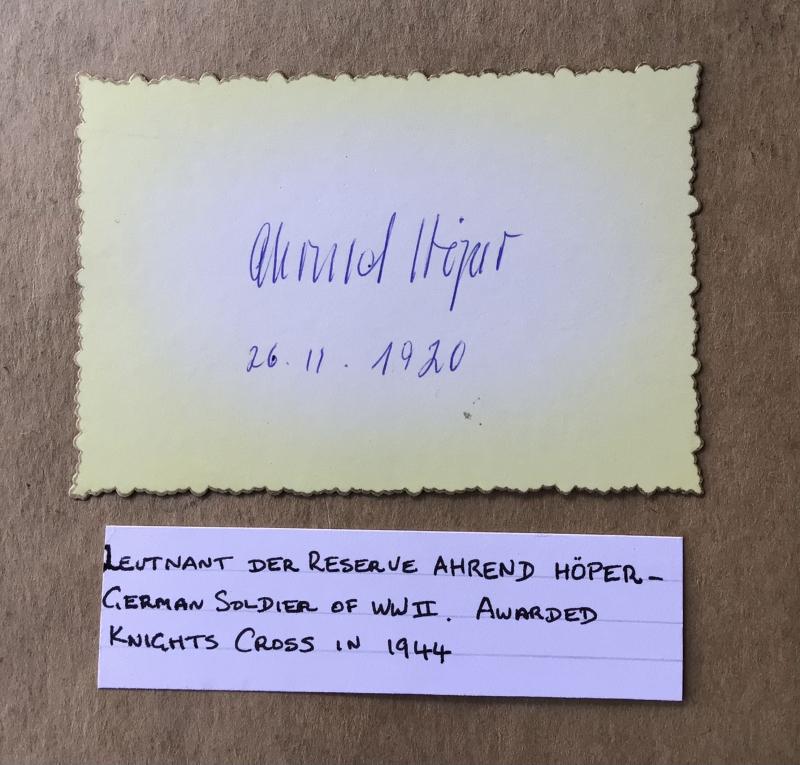 Ahrend Höper
26. 11. 1920
LEUTNANT DER RESERVE AHREND HÖPER –
GERMAN SOLDIER OF WWII. AWARDED
KNIGHTS CROSS IN 1944